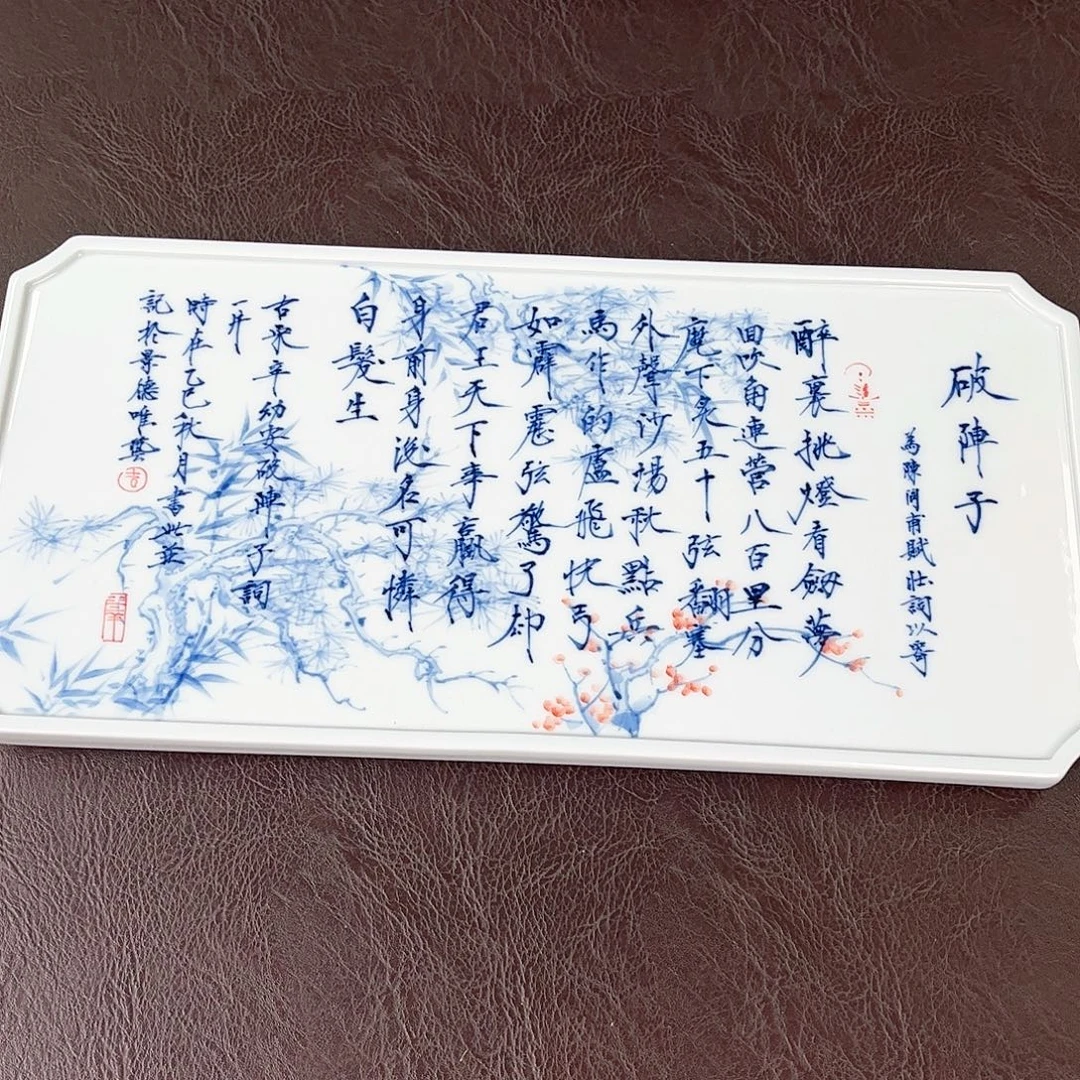 破陣子
為陳同甫賦壯詞以寄
醉裏挑燈看劍夢
回吹角連營八百里分
麾下炙五十弦翻塞
外聲沙場秋點兵
馬作的盧飛快弓
如霹靂弦驚了卻
君王天下事贏得
身前身後名可憐
白髮生
右录辛幼安破陣子詞
一
時在乙巳秋月書此並
記於景德唯